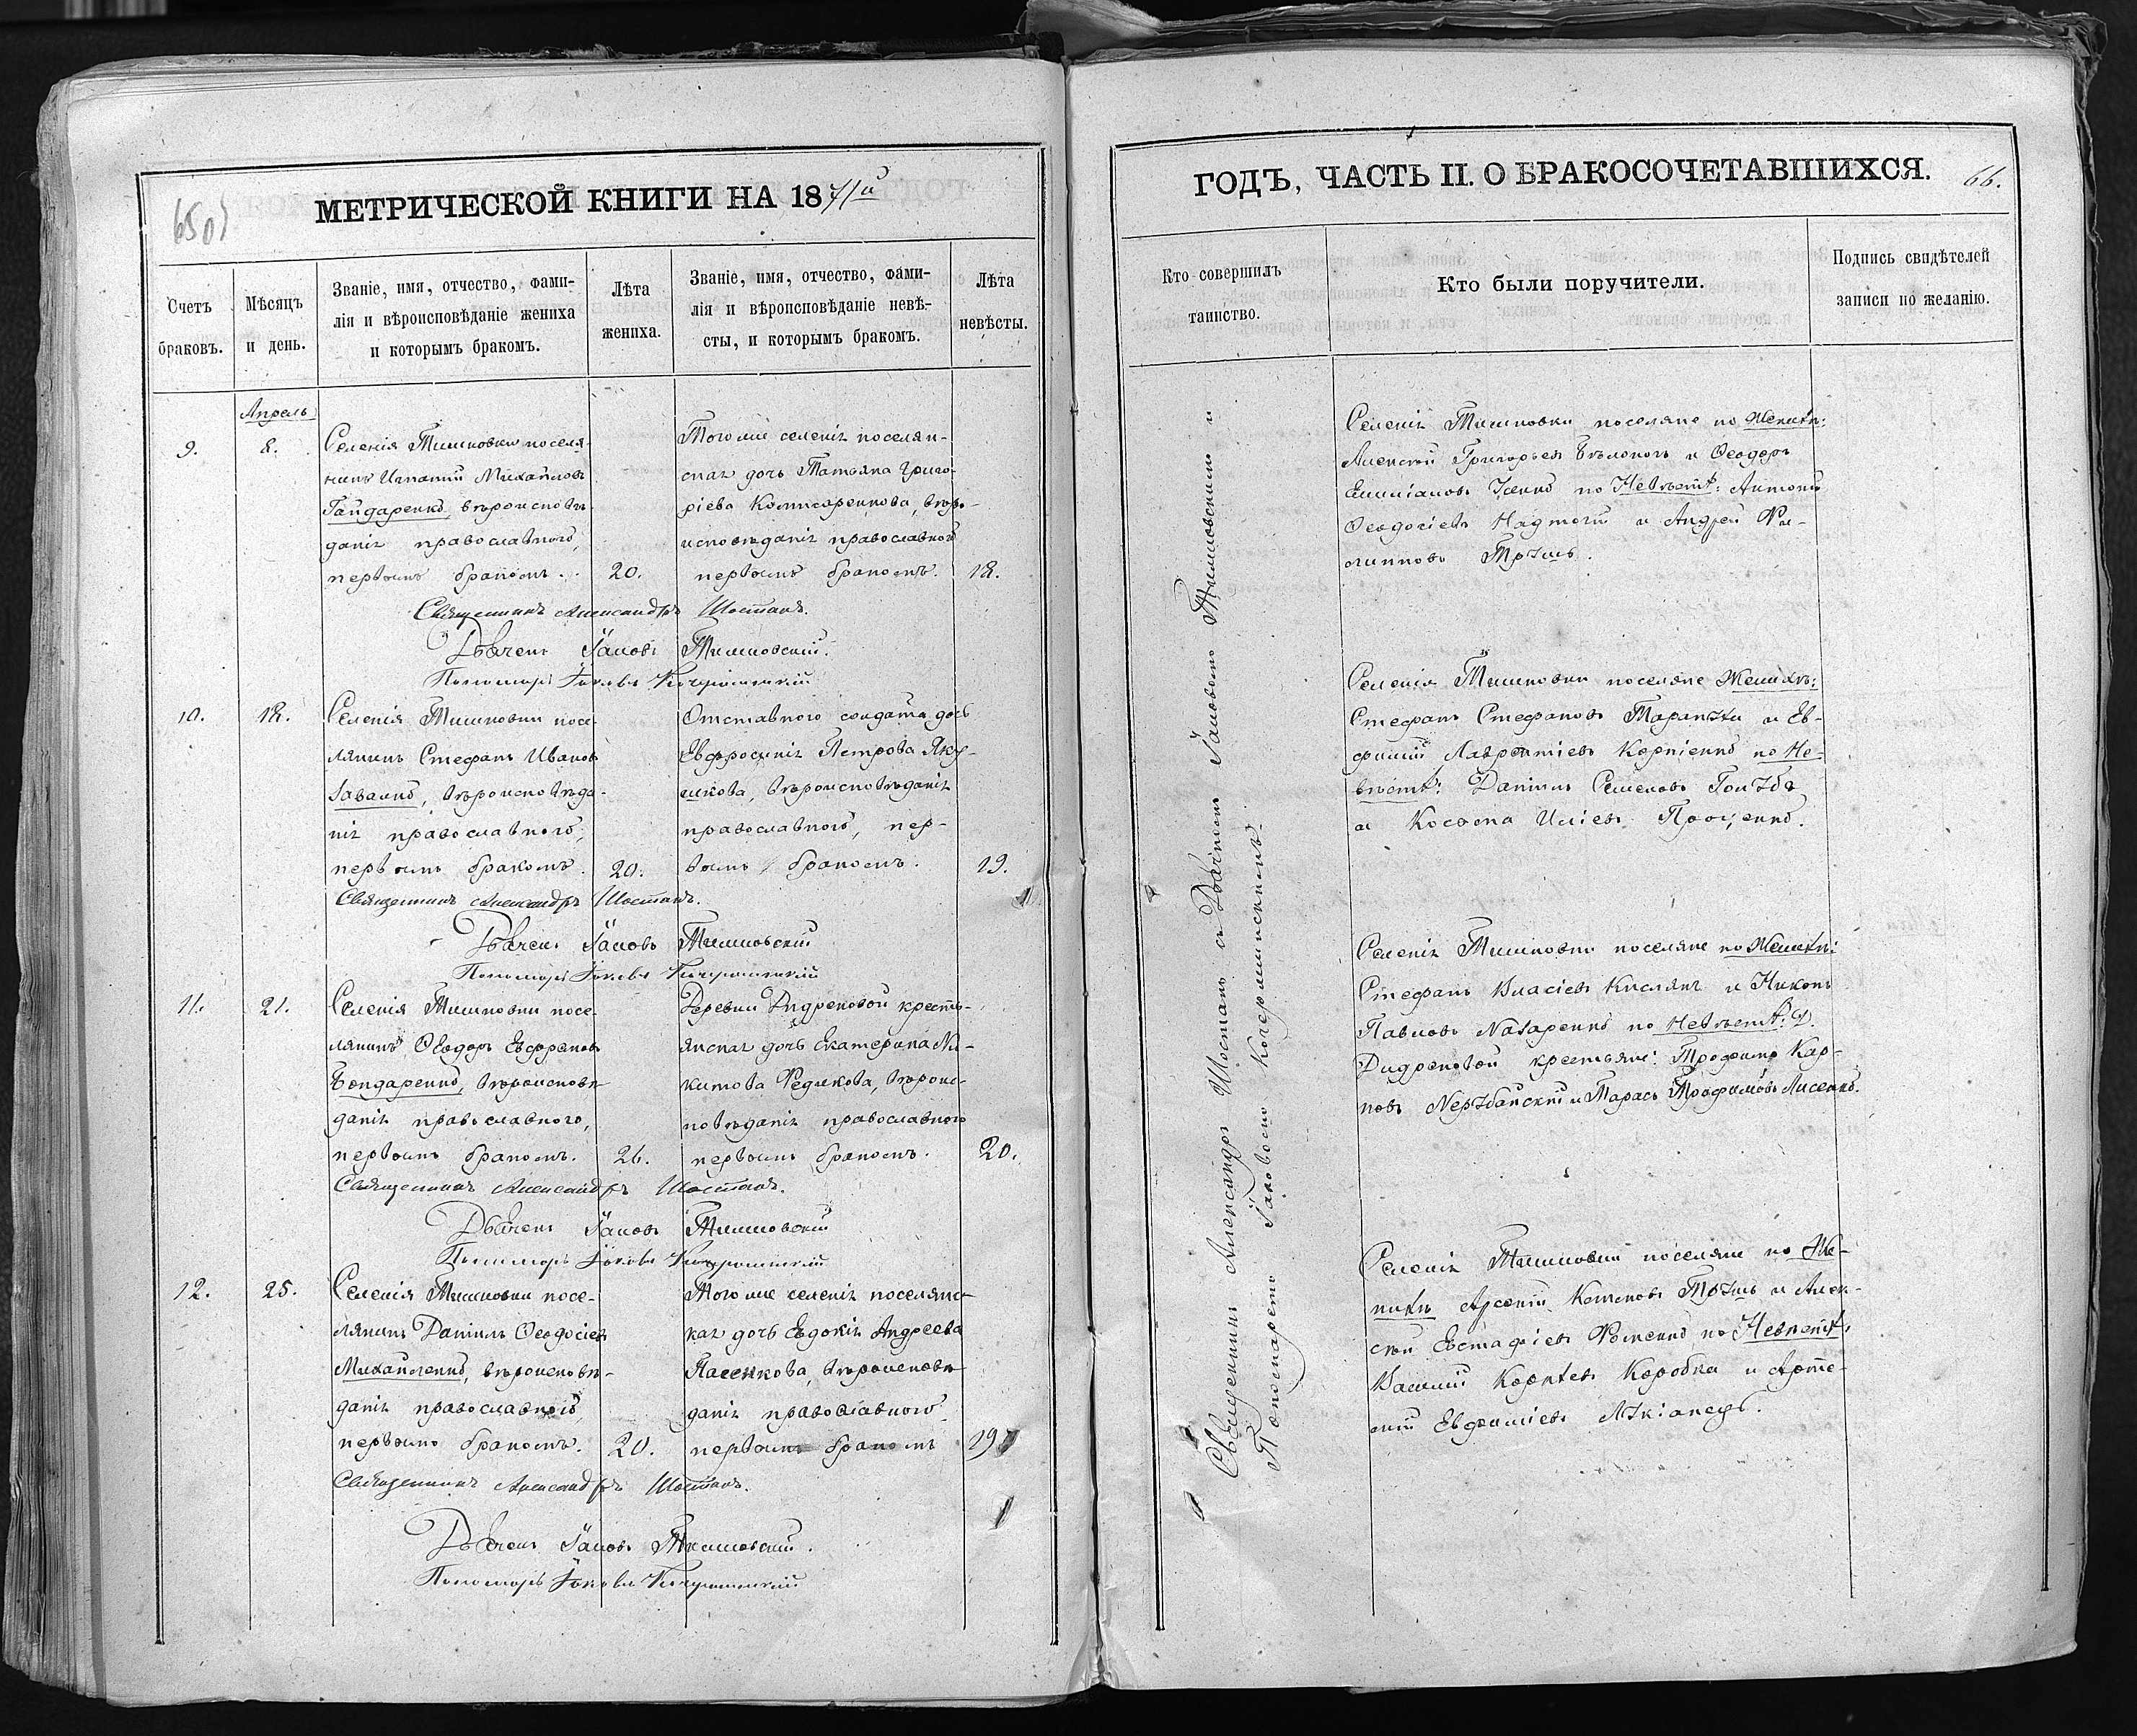 6501
МЕТРИЧЕСКОЙ КНИГИ НА 1871й
Счетъ браковъ.
Мѣсяцъ и день.
Званіе, имя, отчество, фами-
лія и вѣроисповѣданіе жениха
и которымъ бракомъ.
Лѣта
жениха.
Званіе, имя, отчество, фами-
лія и вѣроисповѣданіе невѣ-
сты, и которымъ бракомъ.
Лѣта
невѣсты.
Апрель
9.
8.
Селенія Тишковки поселя-
нинъ Игнатий Михайловъ
Гайдаренко, вѣроисповѣ-
данія православного,
первымъ бракомъ.
20.
Того же селенія поселян-
ская дочь Татьяна Григо-
ріева Комисаренкова, вѣро-
исповѣданія православного
первымъ бракомъ.
18.
Священникъ Александръ Шостакъ.
Дьячекъ Іаковъ Тишковский.
Пономарь Іаковъ
10.
18.
Селенія Тишковки посе-
лянинъ Стефанъ Ивановъ
вѣроисповѣда-
нія православного,
первымъ бракомъ.
20.
Отставного солдата дочь
Евфросинія Петрова Яку-
шкова, вѣроисповѣданія
православного, пер-
вымъ бракомъ.
19.
Священникъ Александръ Шостакъ.
Дьячекъ Іаковъ Тишковский
Пономарь Іаковъ
11.
21.
Селенія Тишковки посе-
лянинъ Ѳеодоръ
Бондаренко, вѣроисповѣ-
данія православного,
первымъ бракомъ.
26.
Деревни Андреновой кресть-
янская дочь Екатерина Ни-
китова Редикова, вѣроис-
повѣданія православного
первымъ бракомъ.
20.
Священникъ Александръ Шостакъ.
Дьячекъ Іаковъ Тишковский
Пономарь Іаковъ
12.
25.
Селенія Тишковки посе-
лянинъ Даниилъ Ѳеодосіевъ
Михайленко, вѣроисповѣ-
данія православного,
первымъ бракомъ.
20.
Того же селенія поселянс-
кая дочь Евдокія Андреева
Пасенкова, вѣроисповѣ-
данія православного
первымъ бракомъ
19
Священникъ Александръ Шостакъ.
Дьячекъ Іаковъ Тишковский.
Пономарь Іаковъ
ГОДЪ, ЧАСТЬ II. О БРАКОСОЧЕТАВШИХСЯ.
66.
Кто совершилъ
таинство.
Кто были поручители.
Подпись свидѣтелей
записи по желанію.
Священникъ Александръ Шостакъ съ Дьячкомъ Іаковомъ Тишковскимъ и
Пономаремъ Іаковомъ
Селенія Тишковки поселяне по Женихѣ:
Алексѣй Григорьевъ Бѣлоконь и Ѳеодоръ
Емиліановъ по Невѣстѣ: Антоній
Ѳеодосіевъ Надточій и Андрей Фи-
липповъ
Селенія Тишковки поселяне Женихѣ:
Стефанъ Стефановъ и Ев-
фимій Лаврентіевъ Корніенко по Не-
вѣстѣ: Даниилъ Семеновъ Голубъ
и Косьма Иліевъ Проценко.
Селенія Тишковки поселяне по Женихѣ:
Стефанъ Власіевъ Кислякъ и Никонъ
Павловъ Назаренко по Невѣстѣ: Д.
крестьяне: Трофимъ Кар-
повъ Нерубайскій и Тарасъ Трофимовъ Лисенко.
Селенія Тишковки поселяне по Же-
нихѣ Арсеній и Алек-
сѣй Евстафіевъ по Невѣстѣ:
Василій Корнѣевъ Коробка и Арте-
мій Евфиміевъ